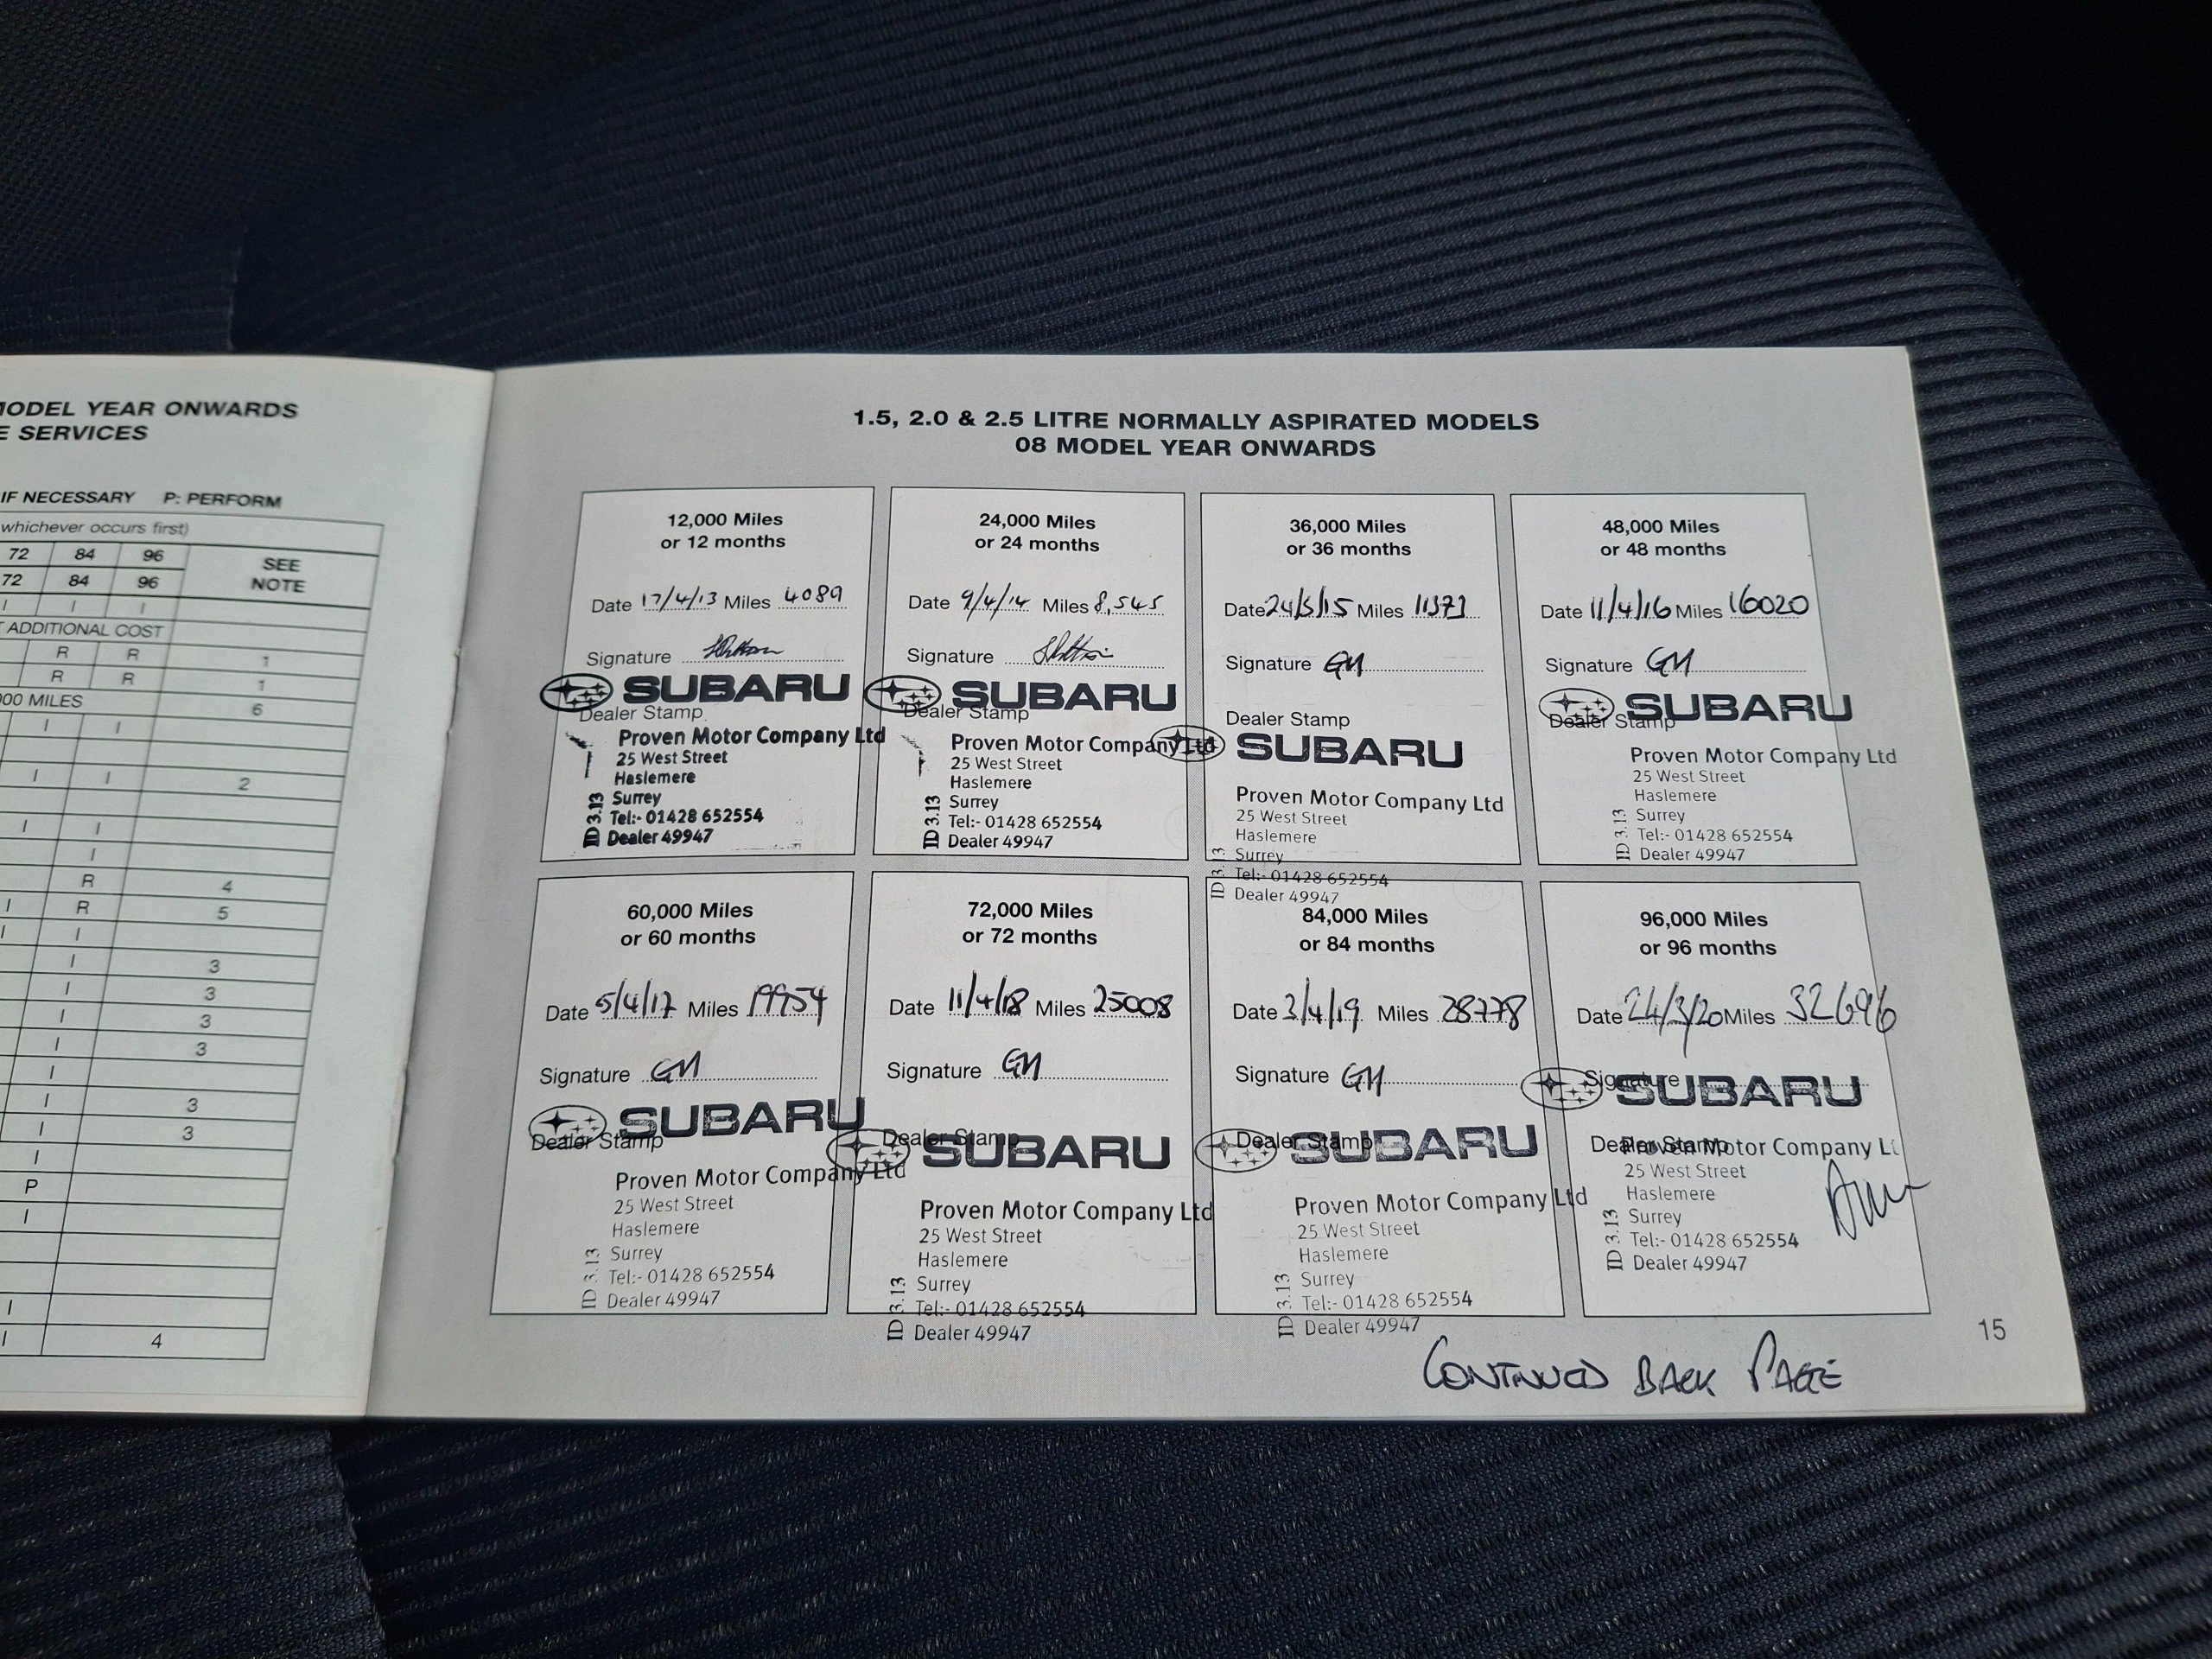 MODEL YEAR ONWARDS
E SERVICES
IF NECESSARY P: PERFORM
whichever occurs first)
72 84 96 SEE
72 84 96 NOTE
I I I
ADDITIONAL COST
R R 1
R R 1
000 MILES 6
I I
I I 2
I I
I
R 4
I R 5
I I
I 3
I 3
I 3
I 3
I
I 3
I 3
I
P
I
I
I 4
1.5, 2.0 & 2.5 LITRE NORMALLY ASPIRATED MODELS
08 MODEL YEAR ONWARDS
12,000 Miles
or 12 months
Date 17/4/13 Miles 4089
Signature
SUBARU
Dealer Stamp
Proven Motor Company Ltd
25 West Street
Haslemere
Surrey
Tel:- 01428 652554
ID 3.13 Dealer 49947
24,000 Miles
or 24 months
Date 9/4/14 Miles 8,545
Signature
SUBARU
Dealer Stamp
Proven Motor Company Ltd
25 West Street
Haslemere
Surrey
Tel:- 01428 652554
ID 3.13 Dealer 49947
36,000 Miles
or 36 months
Date Miles
Signature GM
Dealer Stamp
SUBARU
Proven Motor Company Ltd
25 West Street
Haslemere
Surrey
Tel:- 01428 652554
ID 3.13 Dealer 49947
48,000 Miles
or 48 months
Date 11/4/16 Miles 16020
Signature GM
SUBARU
Dealer Stamp
Proven Motor Company Ltd
25 West Street
Haslemere
Surrey
Tel:- 01428 652554
ID 3.13 Dealer 49947
60,000 Miles
or 60 months
Date 5/4/17 Miles 19954
Signature GM
SUBARU
Dealer Stamp
Proven Motor Company Ltd
25 West Street
Haslemere
Surrey
Tel:- 01428 652554
ID 3.13 Dealer 49947
72,000 Miles
or 72 months
Date 11/4/18 Miles 25008
Signature GM
Dealer Stamp
SUBARU
Proven Motor Company Ltd
25 West Street
Haslemere
Surrey
Tel:- 01428 652554
ID 3.13 Dealer 49947
84,000 Miles
or 84 months
Date 3/4/19 Miles 28778
Signature GM
Dealer Stamp
SUBARU
Proven Motor Company Ltd
25 West Street
Haslemere
Surrey
Tel:- 01428 652554
ID 3.13 Dealer 49947
96,000 Miles
or 96 months
Date 24/3/20 Miles 32696
Signature
SUBARU
Dealer Stamp
Proven Motor Company Lt
25 West Street
Haslemere
Surrey
Tel:- 01428 652554
ID 3.13 Dealer 49947
15
CONTINUED BACK PAGE